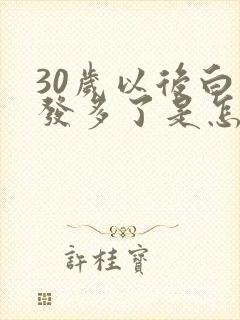 30歲以後白
發多了是怎
許桂寶